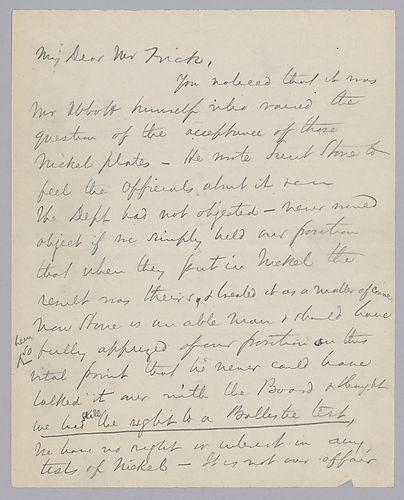 My Dear Mr Frick,
You noticed that it was
Mr Abbott himself who raised the
question of the acceptance of those
Nickel plates — He wrote Lieut Stone to
feel the Officials about it
The Dept had not objected — never would
object if we simply held our position
that when they put in Nickel the
result was theirs, & treated it as a matter of course
Now Stone is an able man & should have
been so fully apprized of our position on this
vital point that he never could have
talked it over with the Board & thought
we had still the right to a Ballistic test,
We have no right or interest in any
tests of Nickel — It is not our affair